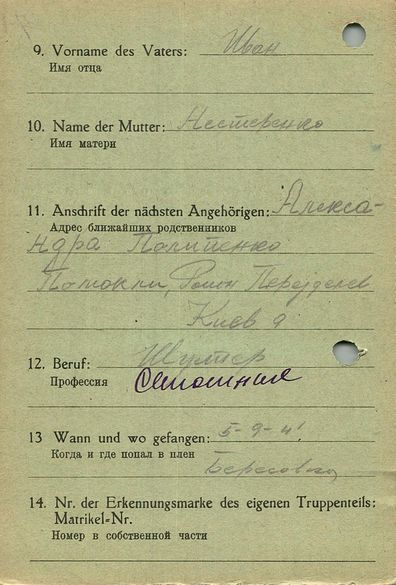 9. Vorname des Vaters: Иван
Имя отца
10. Name der Mutter: Нестеренко
Имя матери
11. Anschrift der nächsten Angehörigen: Алекса-
Адрес ближайших родственников
ндра
Киев
12. Beruf:
Профессия
13 Wann und wo gefangen: 5-9-41
Когда и где попал в плен
14. Nr. der Erkennungsmarke des eigenen Truppenteils:
Matrikel-Nr.
Номер в собственной части